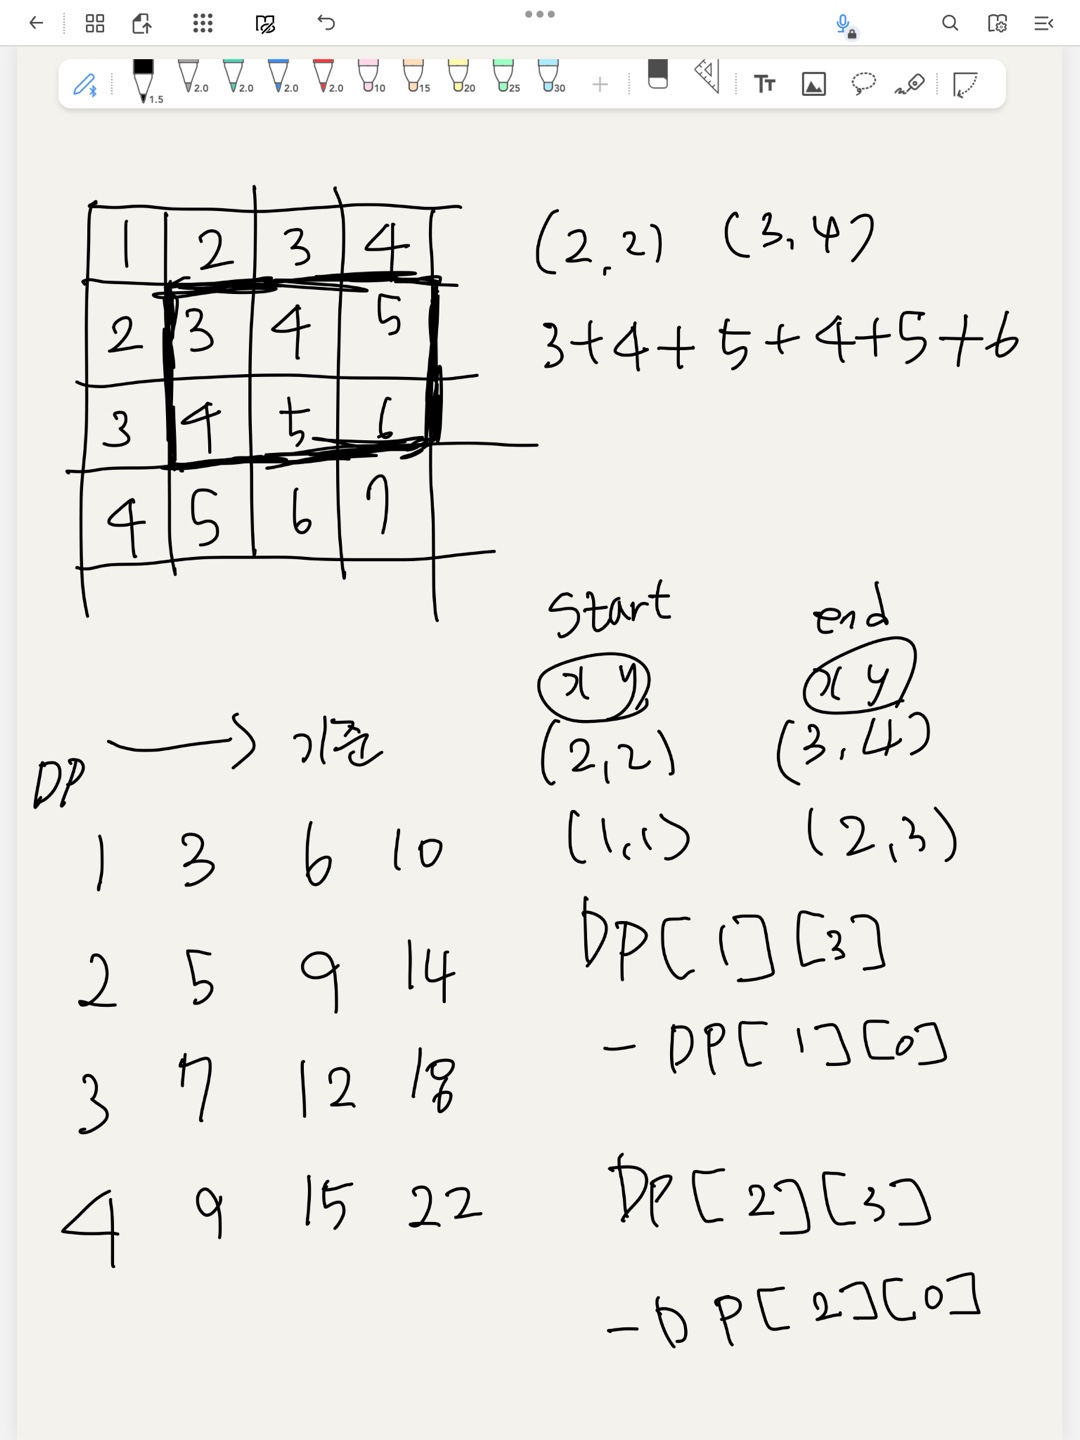 1.5 2.0 2.0 2.0 2.0 10 15 20 25 30 TT
1 2 3 4
2 3 4 5
3 4 5 6
4 5 6 7
(2,2) (3,4)
3+4+5+4+5+6
start end
x y x y
(2,2) (3,4)
(1,1) (2,3)
DP → 기준
1 3 6 10
2 5 9 14
3 7 12 18
4 9 15 22
DP[1][3]
- DP[1][0]
DP[2][3]
- DP[2][0]